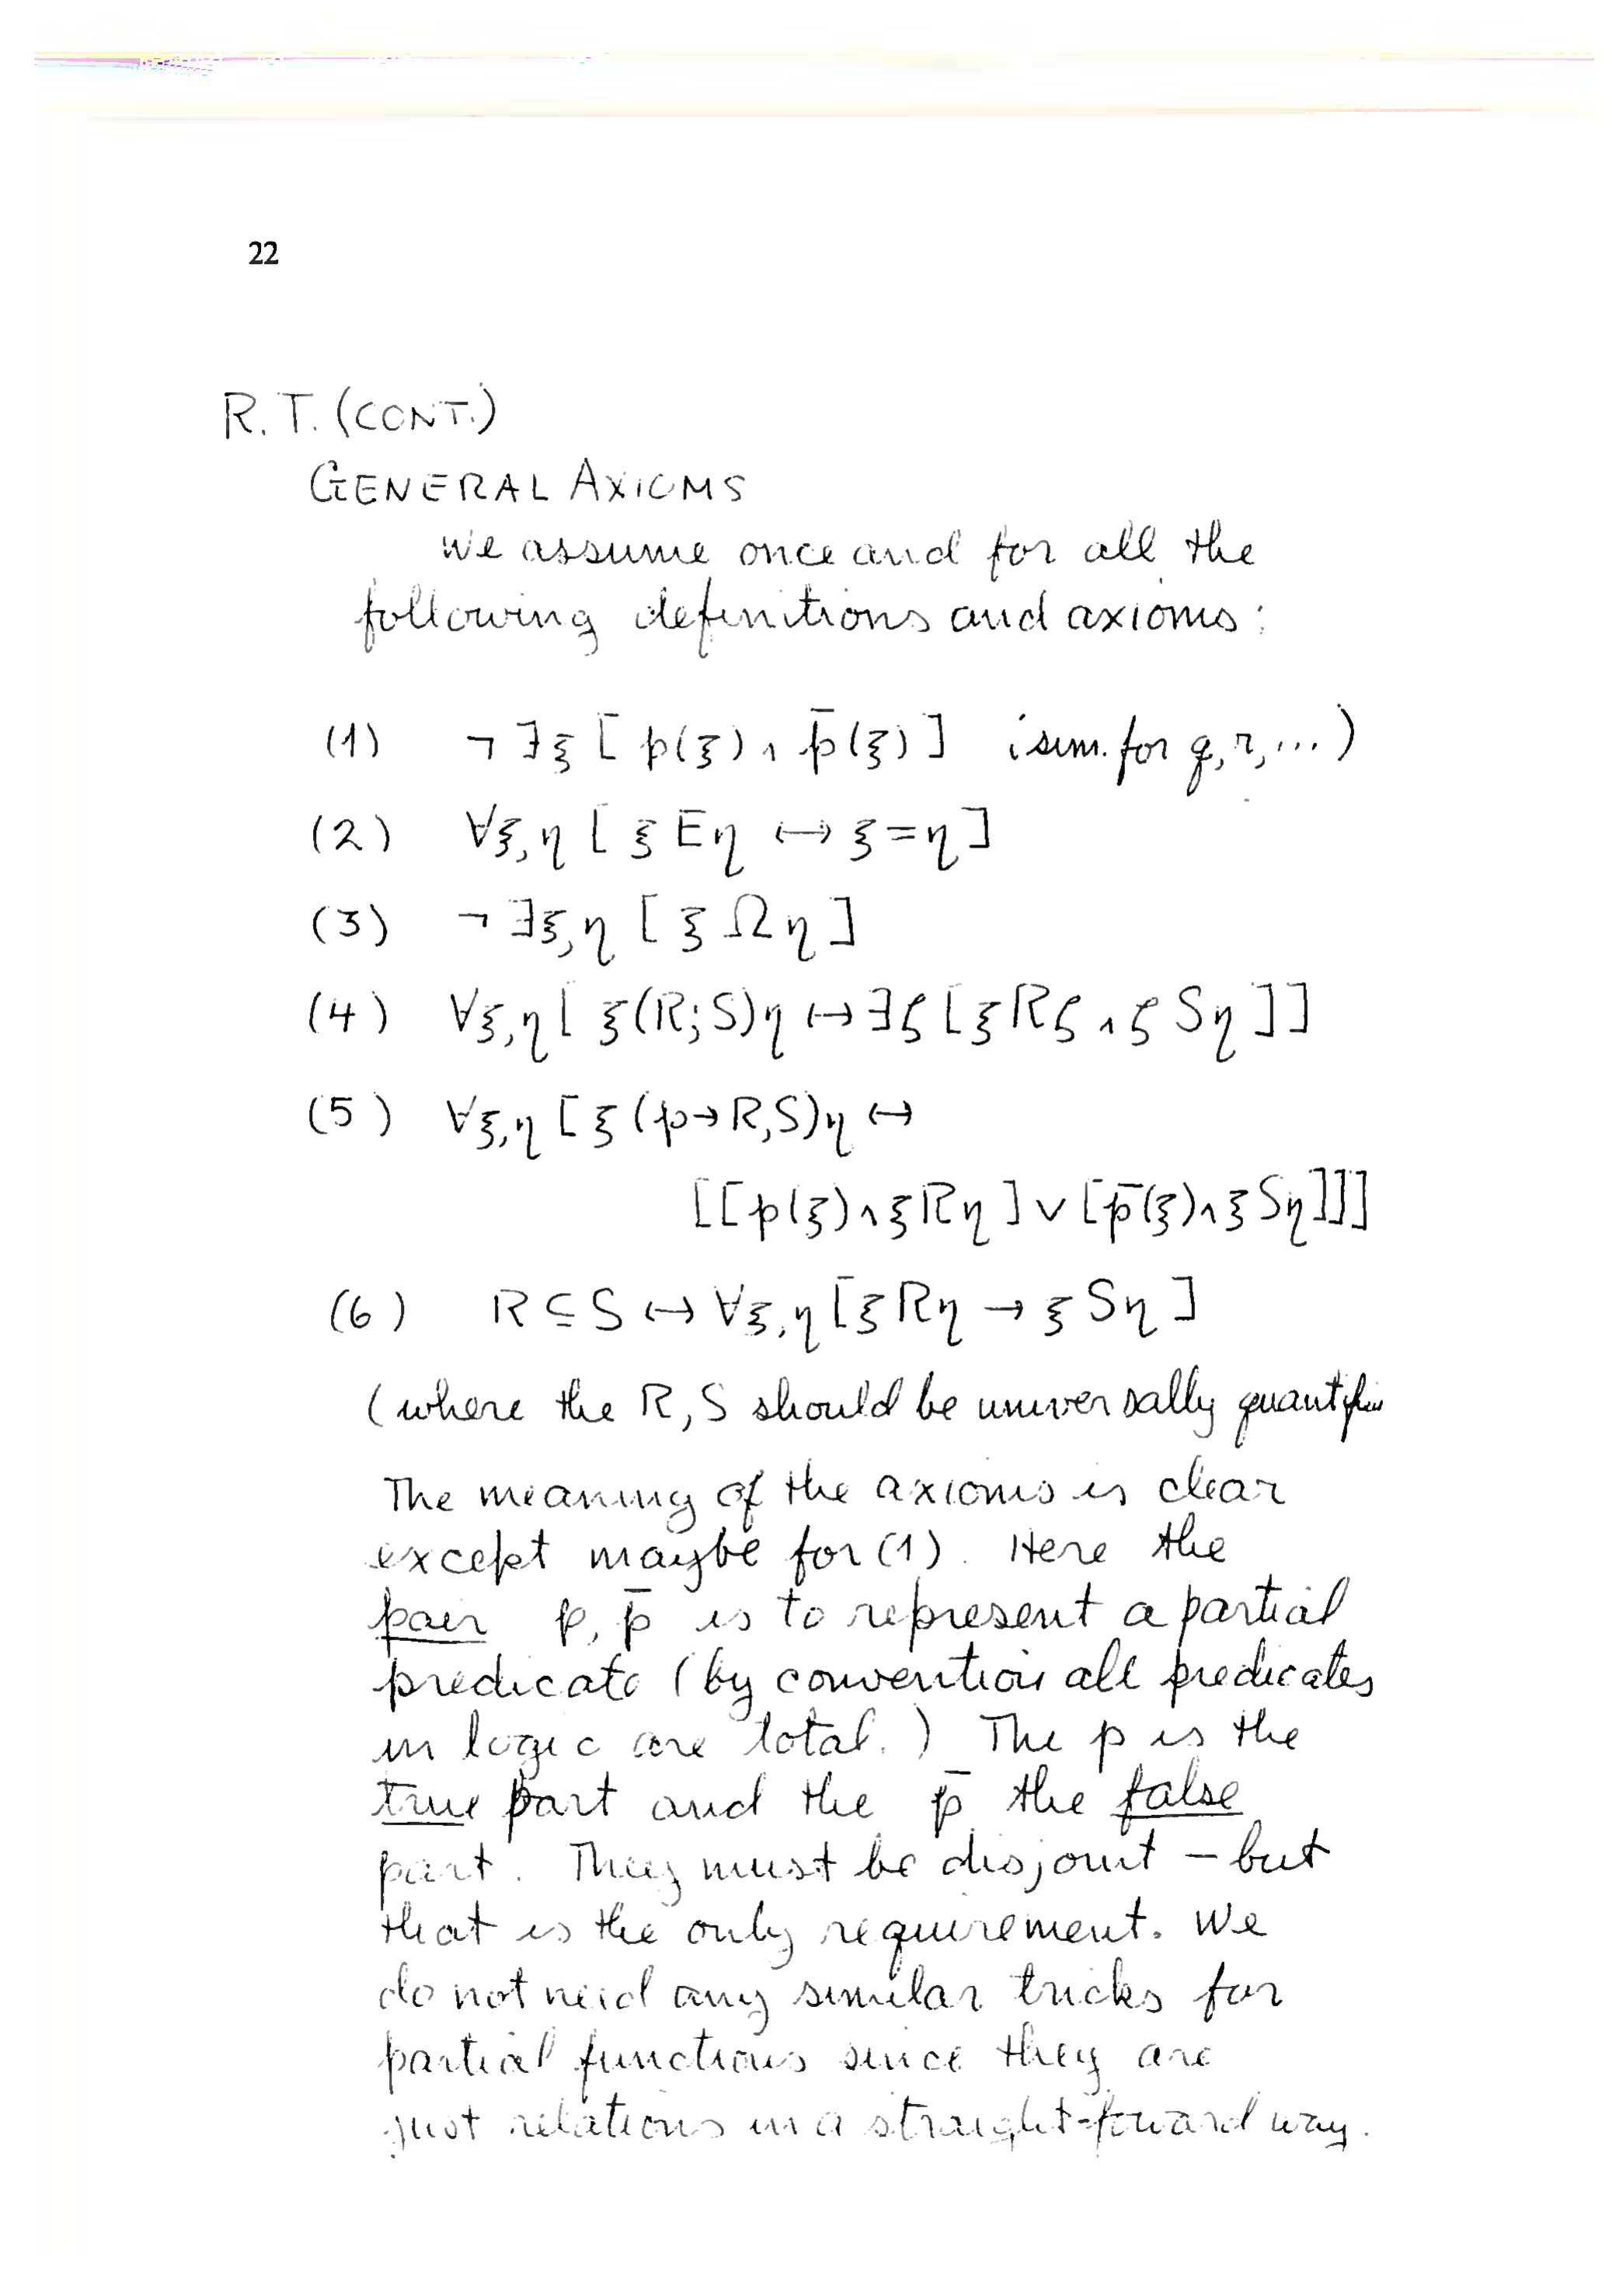 22
R.T. (CONT.)
GENERAL AXIOMS
We assume once and for all the
following definitions and axioms:
(1) ¬∃ξ [ p(ξ) ∧ p̄(ξ) ] (sim. for q, r, ...)
(2) ∀ξ,η [ ξ E η ↔ ξ = η ]
(3) ¬∃ξ,η [ ξ Ω η ]
(4) ∀ξ,η [ ξ(R;S)η ↔ ∃ζ [ ξRζ ∧ ζSη ] ]
(5) ∀ξ,η [ ξ(p→R,S)η ↔
[[p(ξ)∧ξRη] ∨ [p̄(ξ)∧ξSη]]]
(6) R ⊆ S ↔ ∀ξ,η [ξRη → ξSη]
(where the R, S should be universally
The meaning of the axioms is clear
except maybe for (1). Here the
pair p, p̄ is to represent a partial
predicate (by convention all predicates
in logic are total.) The p is the
true part and the p̄ the false
part. They must be disjoint – but
that is the only requirement. We
do not need any similar tricks for
partial functions since they are
just relations in a straight-foward way.